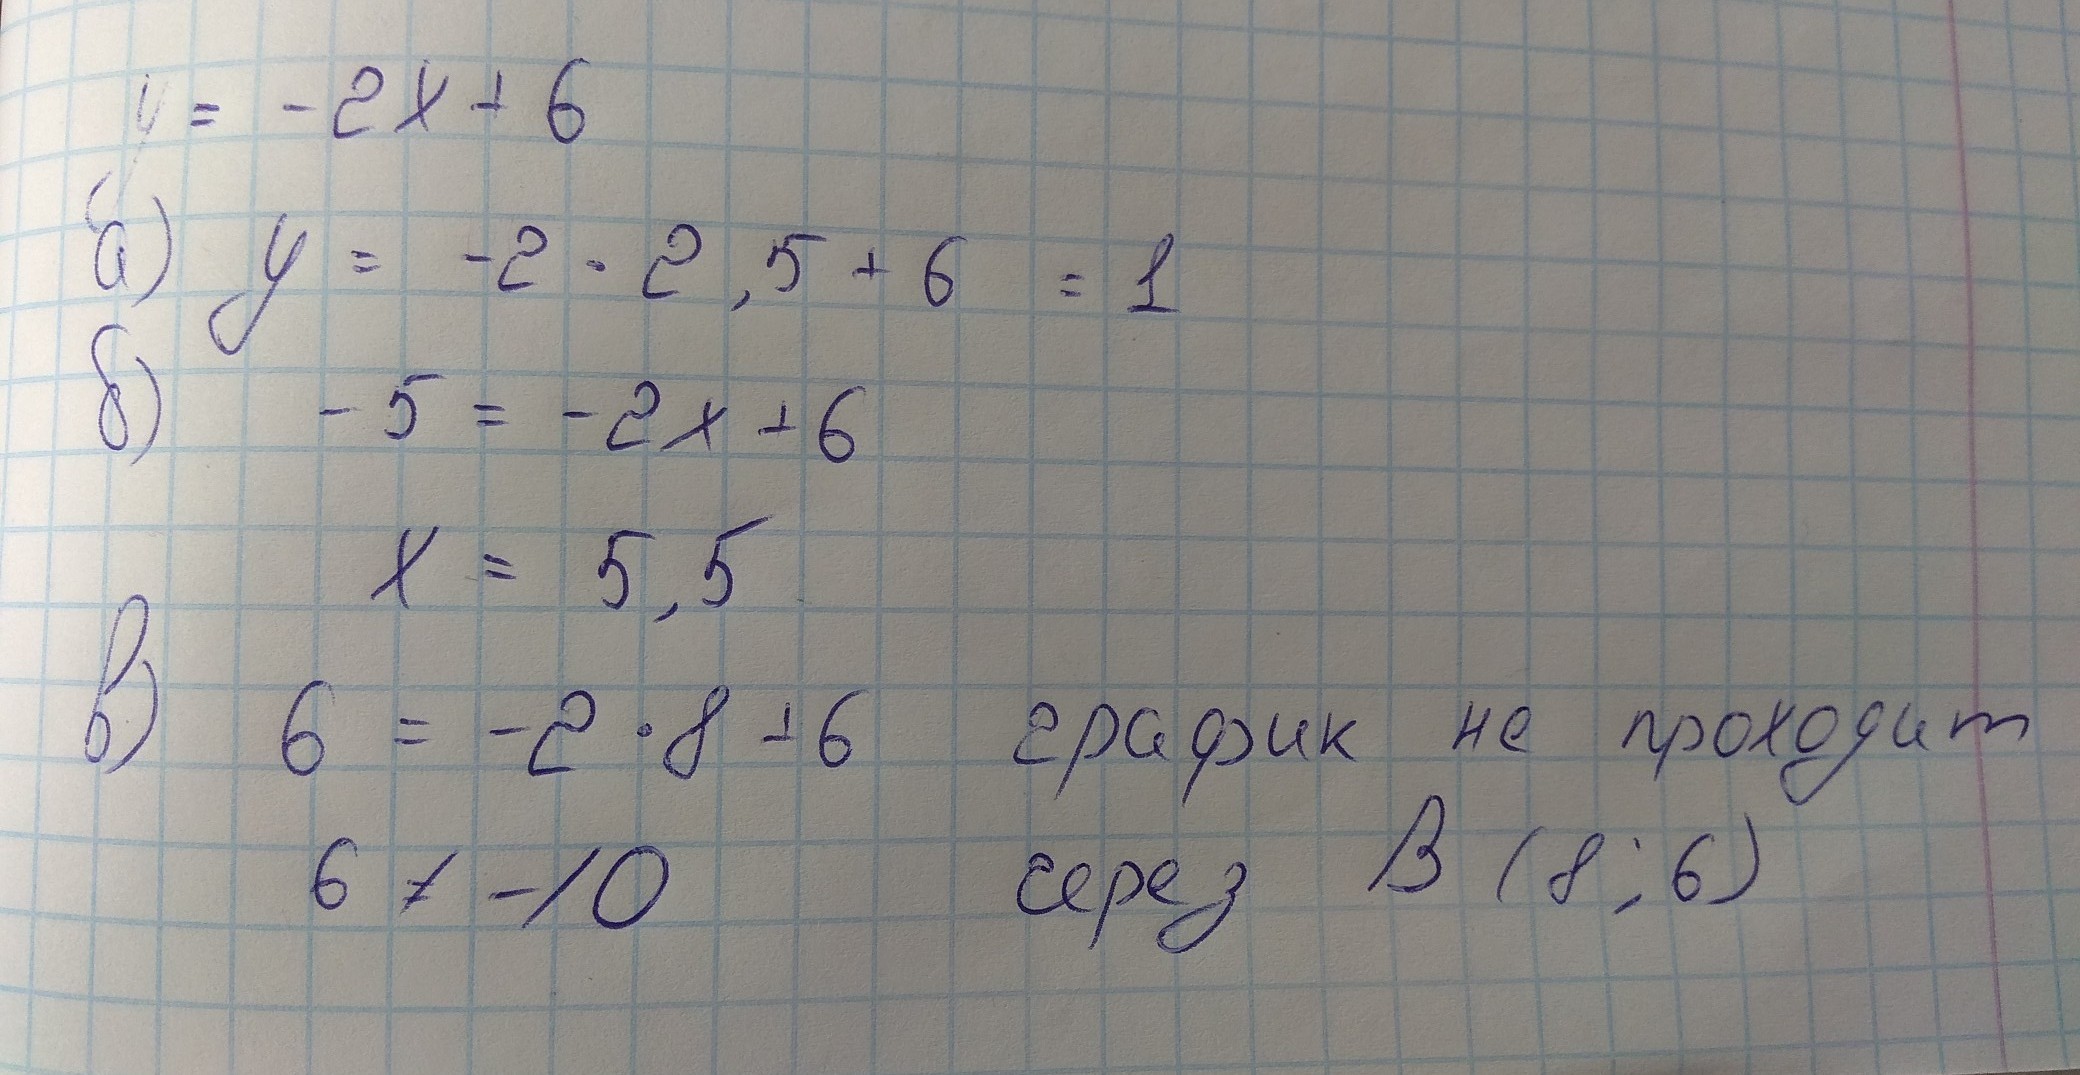 y = -2x + 6
а) y = -2 · 2,5 + 6 = 1
б) -5 = -2x + 6
x = 5,5
в) 6 = -2 · 8 + 6 график не проходит
6 ≠ -10 через B (8; 6)